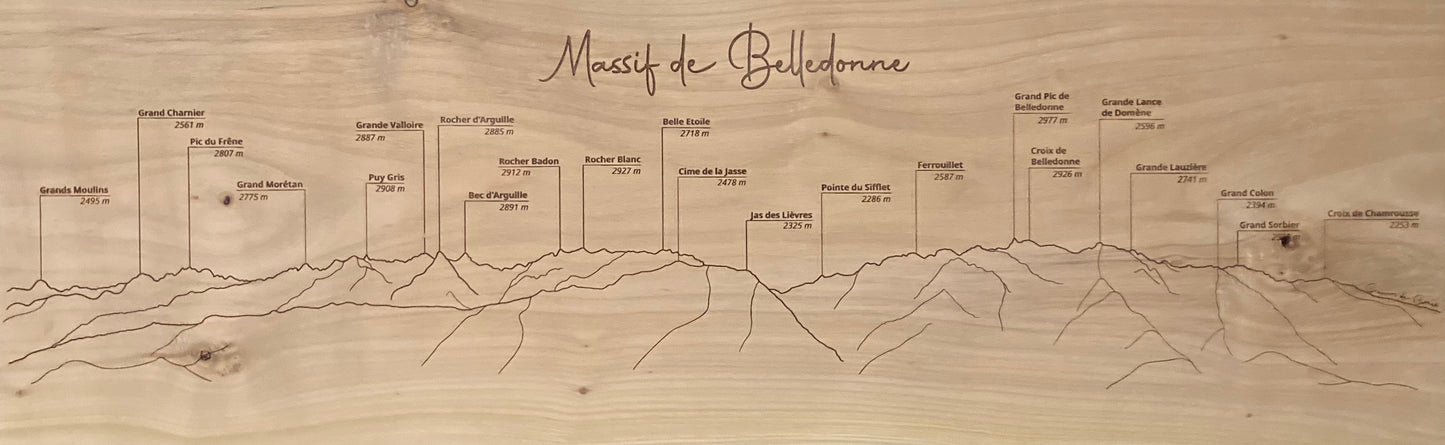 Massif de Belledonne
Grands Moulins
2495 m
Grand Charnier
2561 m
Pic du Frêne
2807 m
Grand Morétan
2775 m
Grande Valloire
2887 m
Puy Gris
2908 m
Rocher d'Arguille
2885 m
Bec d'Arguille
2891 m
Rocher Badon
2912 m
Rocher Blanc
2927 m
Belle Etoile
2718 m
Cime de la Jasse
2478 m
Jas des Lièvres
2325 m
Pointe du Sifflet
2286 m
Ferrouillet
2587 m
Grand Pic de
Belledonne
2977 m
Croix de
Belledonne
2926 m
Grande Lance
de Domène
2596 m
Grande Lauzière
2741 m
Grand Colon
2394 m
Grand Sorbier
Croix de Chamrousse
2253 m